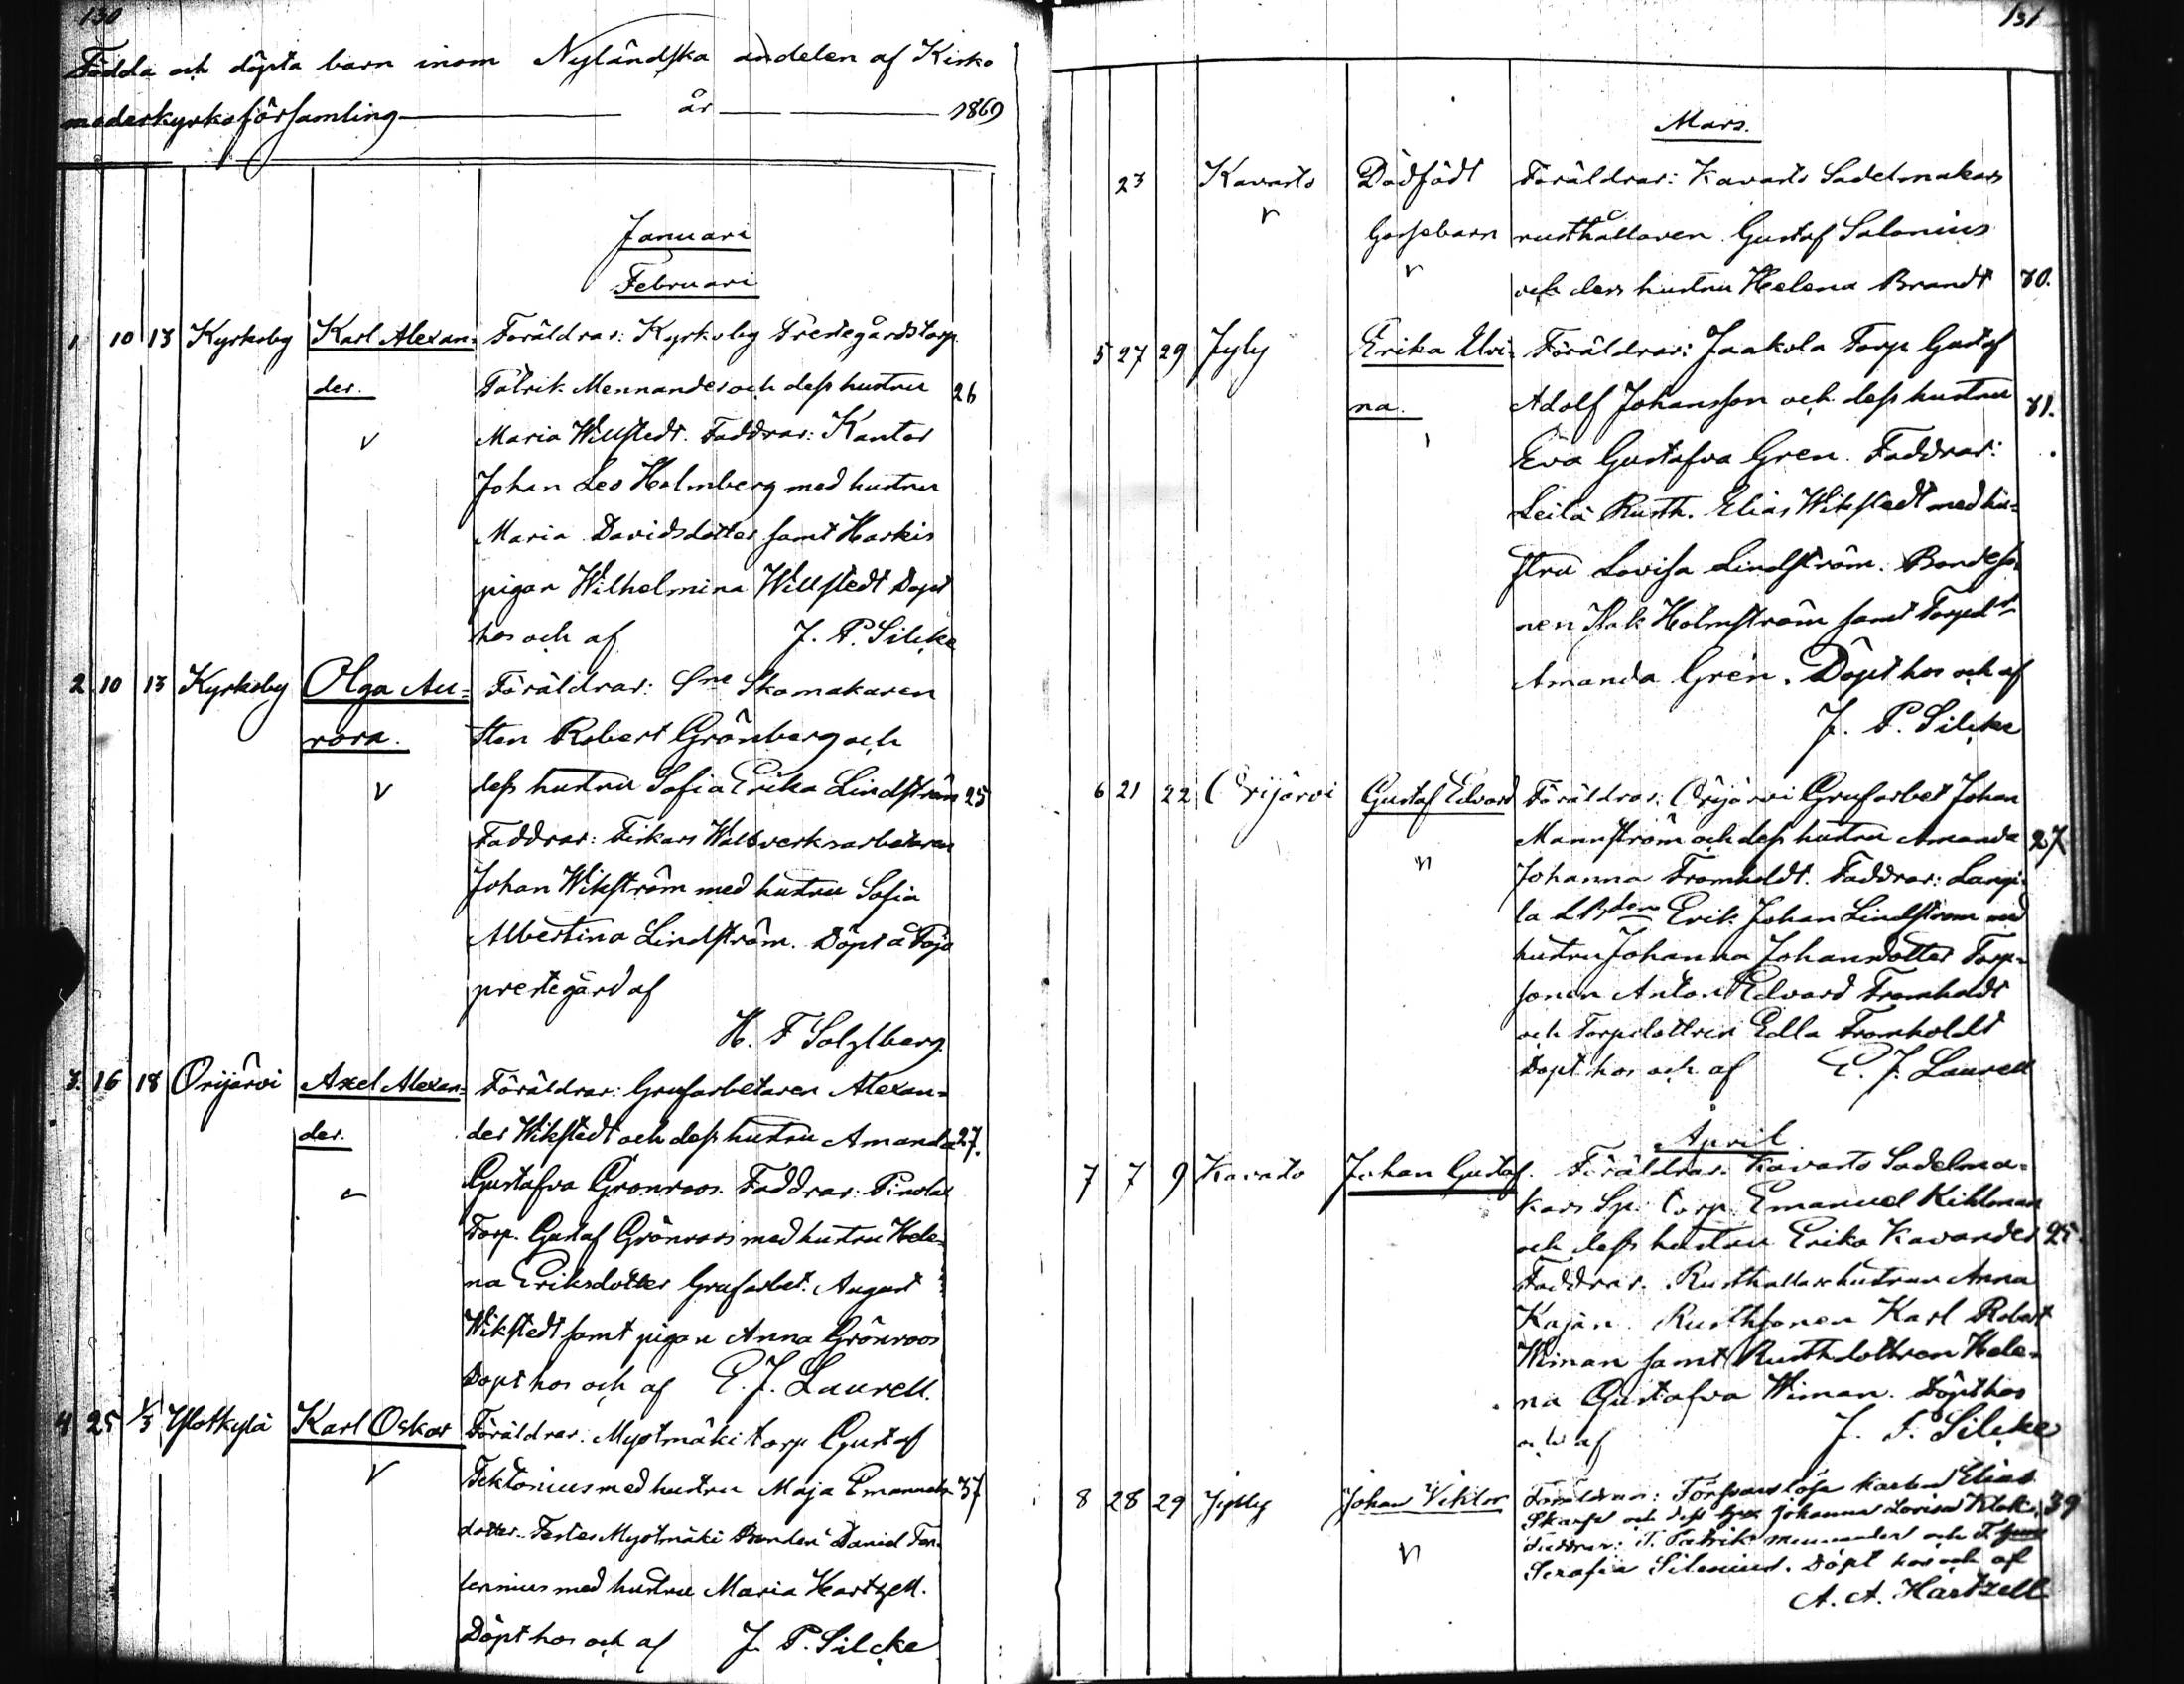 130
Födda och döpta barn inom Nyländska andelen af Kisko
moderkyrkoförsamling år 1869
Januari
Februari
1 10 13 Kyrkoby Karl Alexan- Föräldrar: Kyrkoby Prestegårdstorp.
der. Patrik Mennander och dess hustru 26
Maria Willstedt. Faddrar: Kantor
Johan Leo Holmberg med hustru
Maria Davidsdotter samt Harkis
pigan Wilhelmina Willstedt Döpt
hos och af J. P. Silcke
2 10 13 Kyrkoby Olga Au- Föräldrar: Sne Skomakaren
rora. Sten Robert Grönberg och
dess hustru Sofia Erika Lindström 25
Faddrar: Fiskars Walsverksarbetaren
Johan Wikström med hustru Sofia
Albertina Lindström. Döpt å Pojo
prestegård af
H. F. Solzlberg.
3. 16 18 Orijärvi Axel Alexan- Föräldrar: Grufarbetaren Alexan-
der. der Wikstedt och dess hustru Amanda 27.
Gustafva Grönroos. Faddrar:
Torp. Gustaf Grönroos med hustru Hele-
na Eriksdotter Grufarbet. August
Wikstedt samt pigan Anna Grönroos
Döpt hos och af E. J. Laurell.
4 25 1/3 Karl Oskar Föräldrar: Myötmäki torp Gustaf
Tektonius med hustru Maja Emanuels- 37
dotter. Testes Myötmäki Bonden Daniel
med hustru Maria Hartzell.
Döpt hos och af J. P. Silcke
131
Mars.
23 Kavasto Dödfödt Föräldrar: Kavasto Sadelmakars
Gossebarn rusthållaren Gustaf Salonius
och dess hustru Helena Brandt 30.
5 27 29 Jyly Erika Elvi- Föräldrar: Jaakola Torp. Gustaf
na. Adolf Johansson och dess hustru 31.
Eva Gustafva Gren. Faddrar:
Leilä Rusth. Elias Wikstedt med hu-
stru Lovisa Lindström. Bondeso-
nen Isak Holmström samt Torpd:n
Amanda Gren. Döpt hos och af
J. P. Silcke
6 21 22 Orijärvi Gustaf Edvard Föräldrar: Orijärvi Grufarbet Johan
Mannström och dess hustru Amanda 27
Johanna Fromholdt. Faddrar: Langi-
la Erik Johan Lindström med
hustru Johanna Johansdotter Torp-
sonen Anton Edvard Fromholdt
och Torpdottren Edla Fromholdt
Döpt hos och af E. J. Laurell
April
7 7 9 Kavasto Johan Gustaf. Föräldrar: Kavasto Sadelma-
kars Sp. torp. Emanuel Kihlman
och dess hustru Erika Kavander 25.
Faddrar. Rusthållarehustrun Anna
Kajan. Rusthsonen Karl Robert
Wiman samt Rusthdottren Hele-
na Gustafva Wiman. Döpt hos
och af J. P. Silcke
8 28 29 Johan Viktor Föräldrar: Försvarslöse karlen Elias
och dess Johanna Lovisa 39
Faddrar: T. Patrik Mennander och
Serafia Silenius. Döpt hos och af
A. A. Hartzell